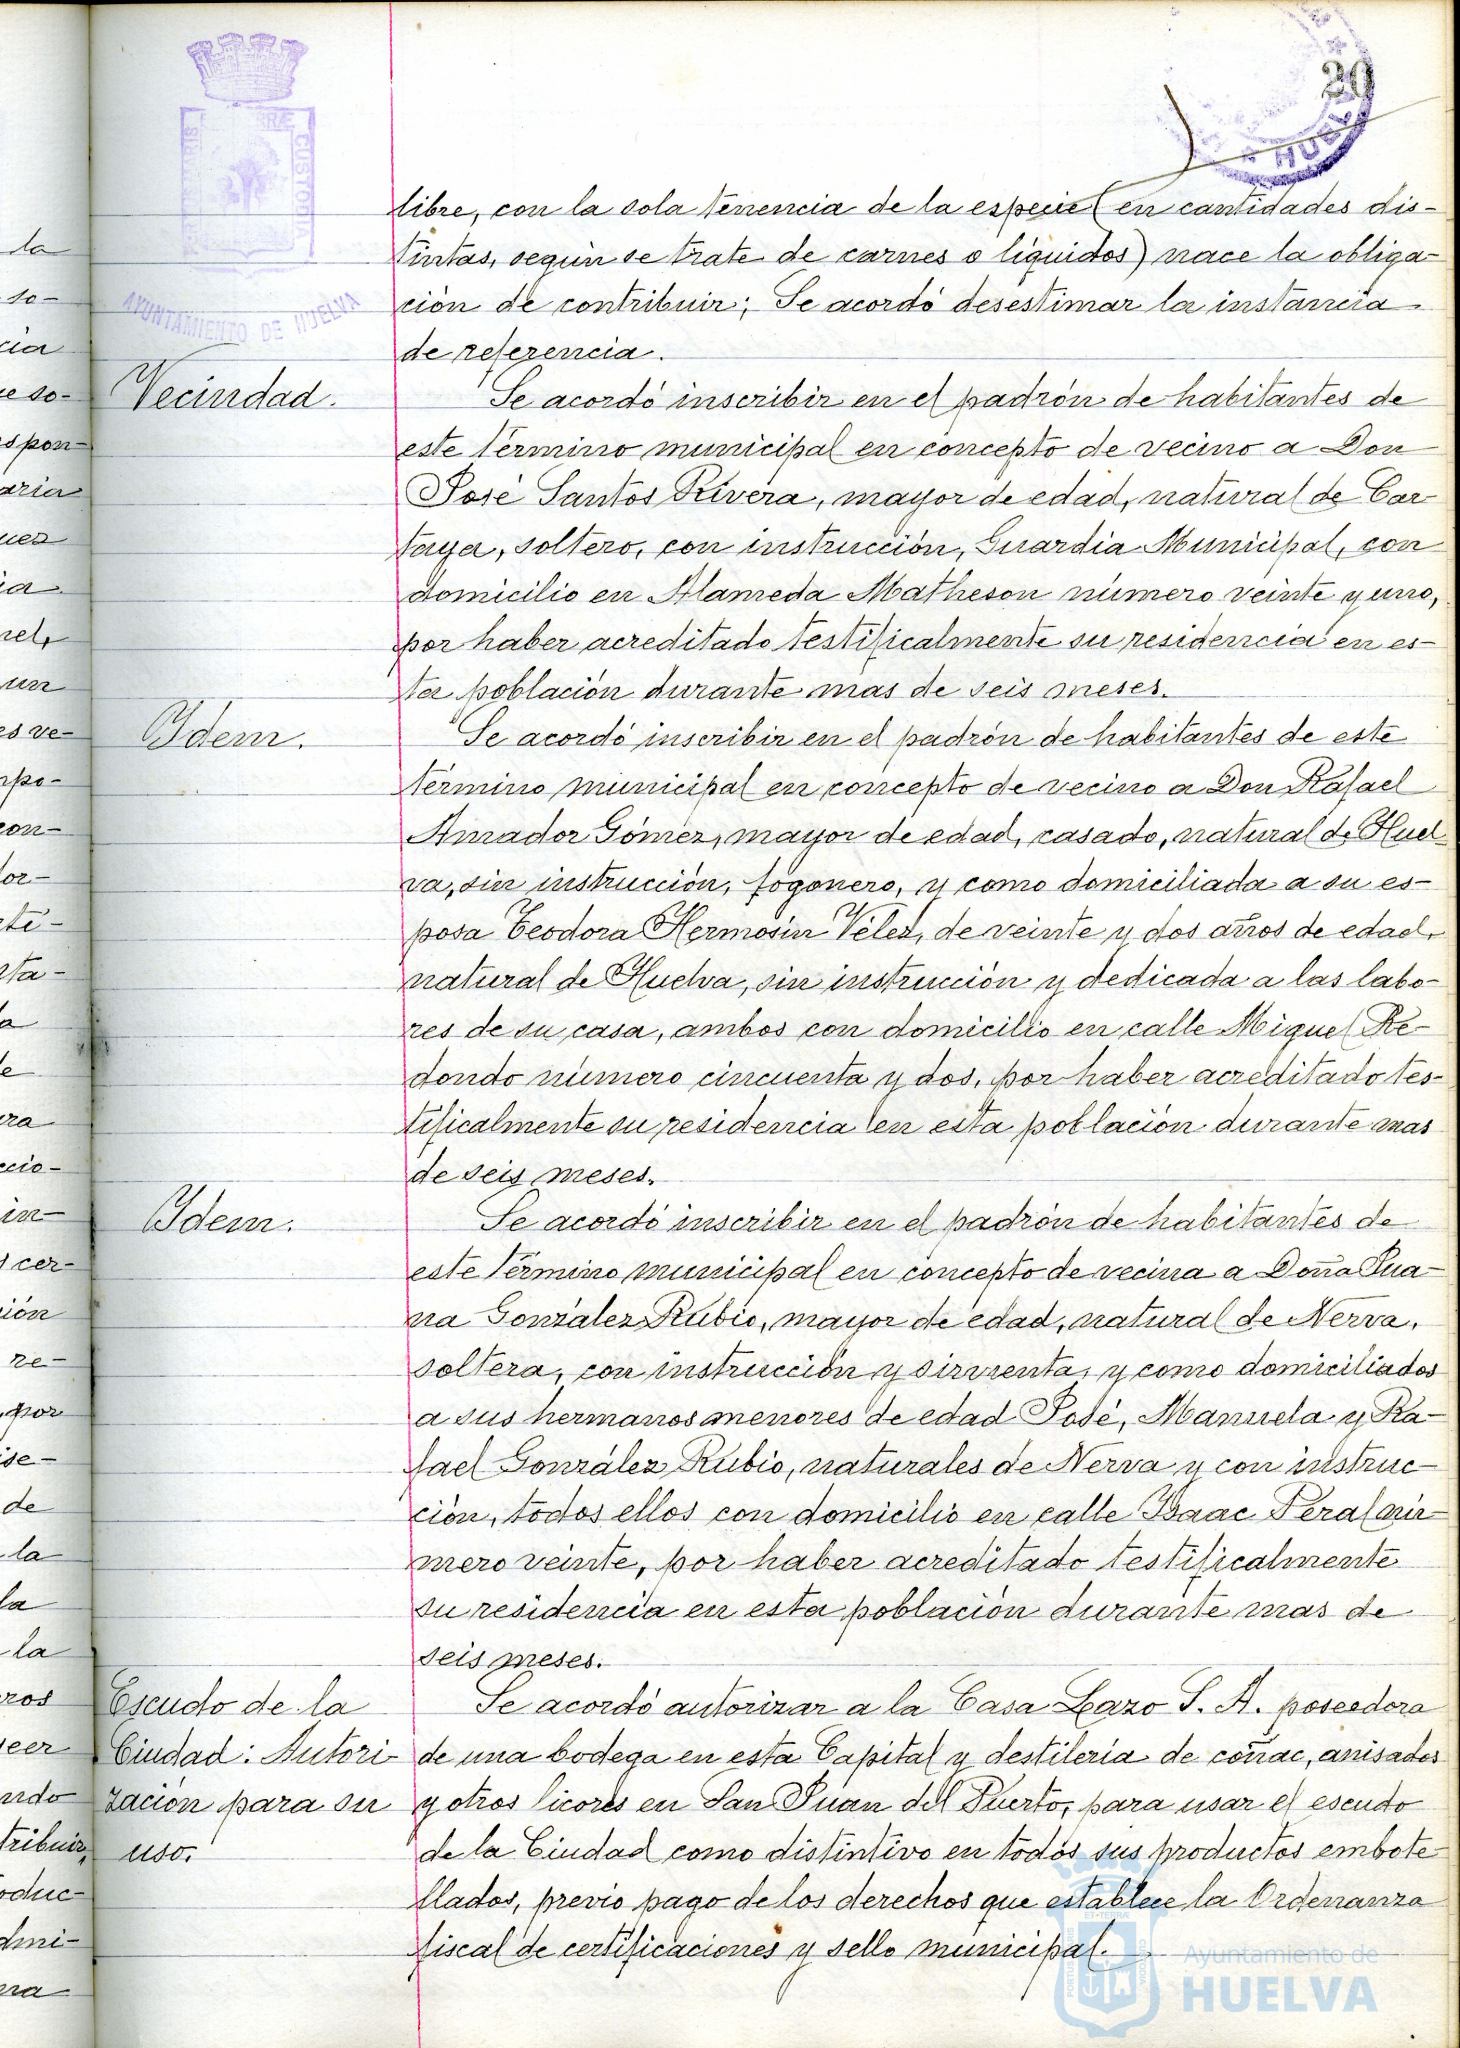 20
HUELVA
CUSTODI
AYUNTAMIENTO DE HUELVA
libre, con la sola tenencia de la especie (en cantidades dis-
tintas, según se trate de carnes o líquidos) nace la obliga-
ción de contribuir; Se acordó desestimar la instancia
de referencia.
Vecindad.
Se acordó inscribir en el padrón de habitantes de
este término municipal en concepto de vecino a Don
José Santos Rivera, mayor de edad, natural de Car-
taya, soltero, con instrucción, Guardia Municipal, con
domicilio en Alameda Matheson número veinte y uno,
por haber acreditado testificalmente su residencia en es-
ta población durante mas de seis meses.
Idem.
Se acordó inscribir en el padrón de habitantes de este
término municipal en concepto de vecino a Don Rafael
Amador Gómez, mayor de edad, casado, natural de Huel-
va, sin instrucción, fogonero, y como domiciliada a su es-
posa Teodora Hermosin Vélez, de veinte y dos años de edad,
natural de Huelva, sin instrucción y dedicada a las labo-
res de su casa, ambos con domicilio en calle Miguel Re-
dondo número cincuenta y dos, por haber acreditado tes-
tificalmente su residencia en esta población durante mas
de seis meses.
Idem.
Se acordó inscribir en el padrón de habitantes de
este término municipal en concepto de vecina a Doña Jua-
na González Rubio, mayor de edad, natural de Nerva,
soltera, con instrucción y sirvienta, y como domiciliados
a sus hermanos menores de edad José, Manuela y Ra-
fael González Rubio, naturales de Nerva y con instruc-
ción, todos ellos con domicilio en calle Isaac Peral nú-
mero veinte, por haber acreditado testificalmente
su residencia en esta población durante mas de
seis meses.
Escudo de la
Ciudad: Autori-
zación para su
uso.
Se acordó autorizar a la Casa Lazo S. A. poseedora
de una bodega en esta Capital y destilería de coñac, anisados
y otros licores en San Juan del Puerto, para usar el escudo
de la Ciudad como distintivo en todos sus productos embote-
llados, previo pago de los derechos que establece la Ordenanza
fiscal de certificaciones y sello municipal.
Ayuntamiento de
HUELVA